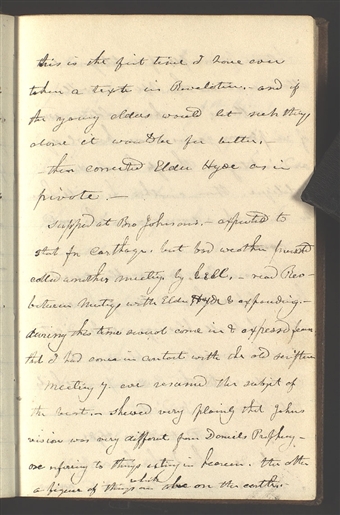 this is the first time I have ever
taken a texte in Revelation. and if
the young elders would let such things
alone it would be far better.-
-then corrected Elder Hyde as in
private.-
Supped at Bro Johnsons.- expected to
start for Carthage. but bad weather prevented
called another meeting by bell.- read Rev-
between Meetings with Elder Hyde & expounding.-
during this time several came in & expressed fear
that I had come in contact with the old scripture
Meeting 7. eve resumed the subject of
the beast.- shewed very plainly that Johns
vision was very different from Daniels Prophecy-
one refering to things existing in heaven. the other
a figure of things which are on the earth.-